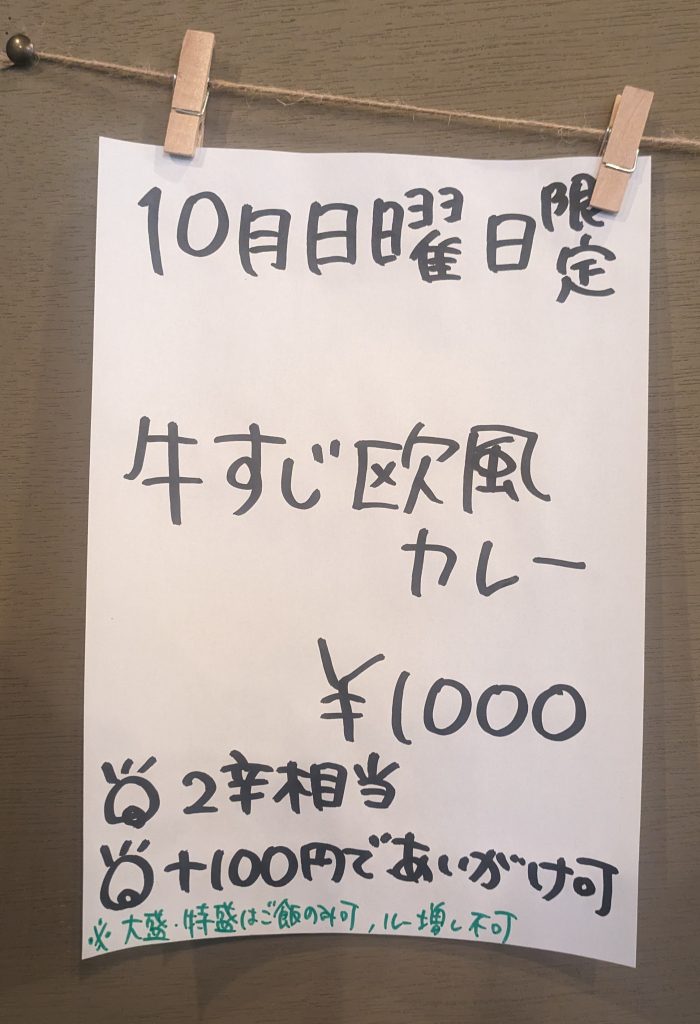 10月日曜日限定
牛すじ欧風
カレー
¥1000
2辛相当
+100円であいがけ可
※大盛・特盛はご飯のみ可,ルー増し不可